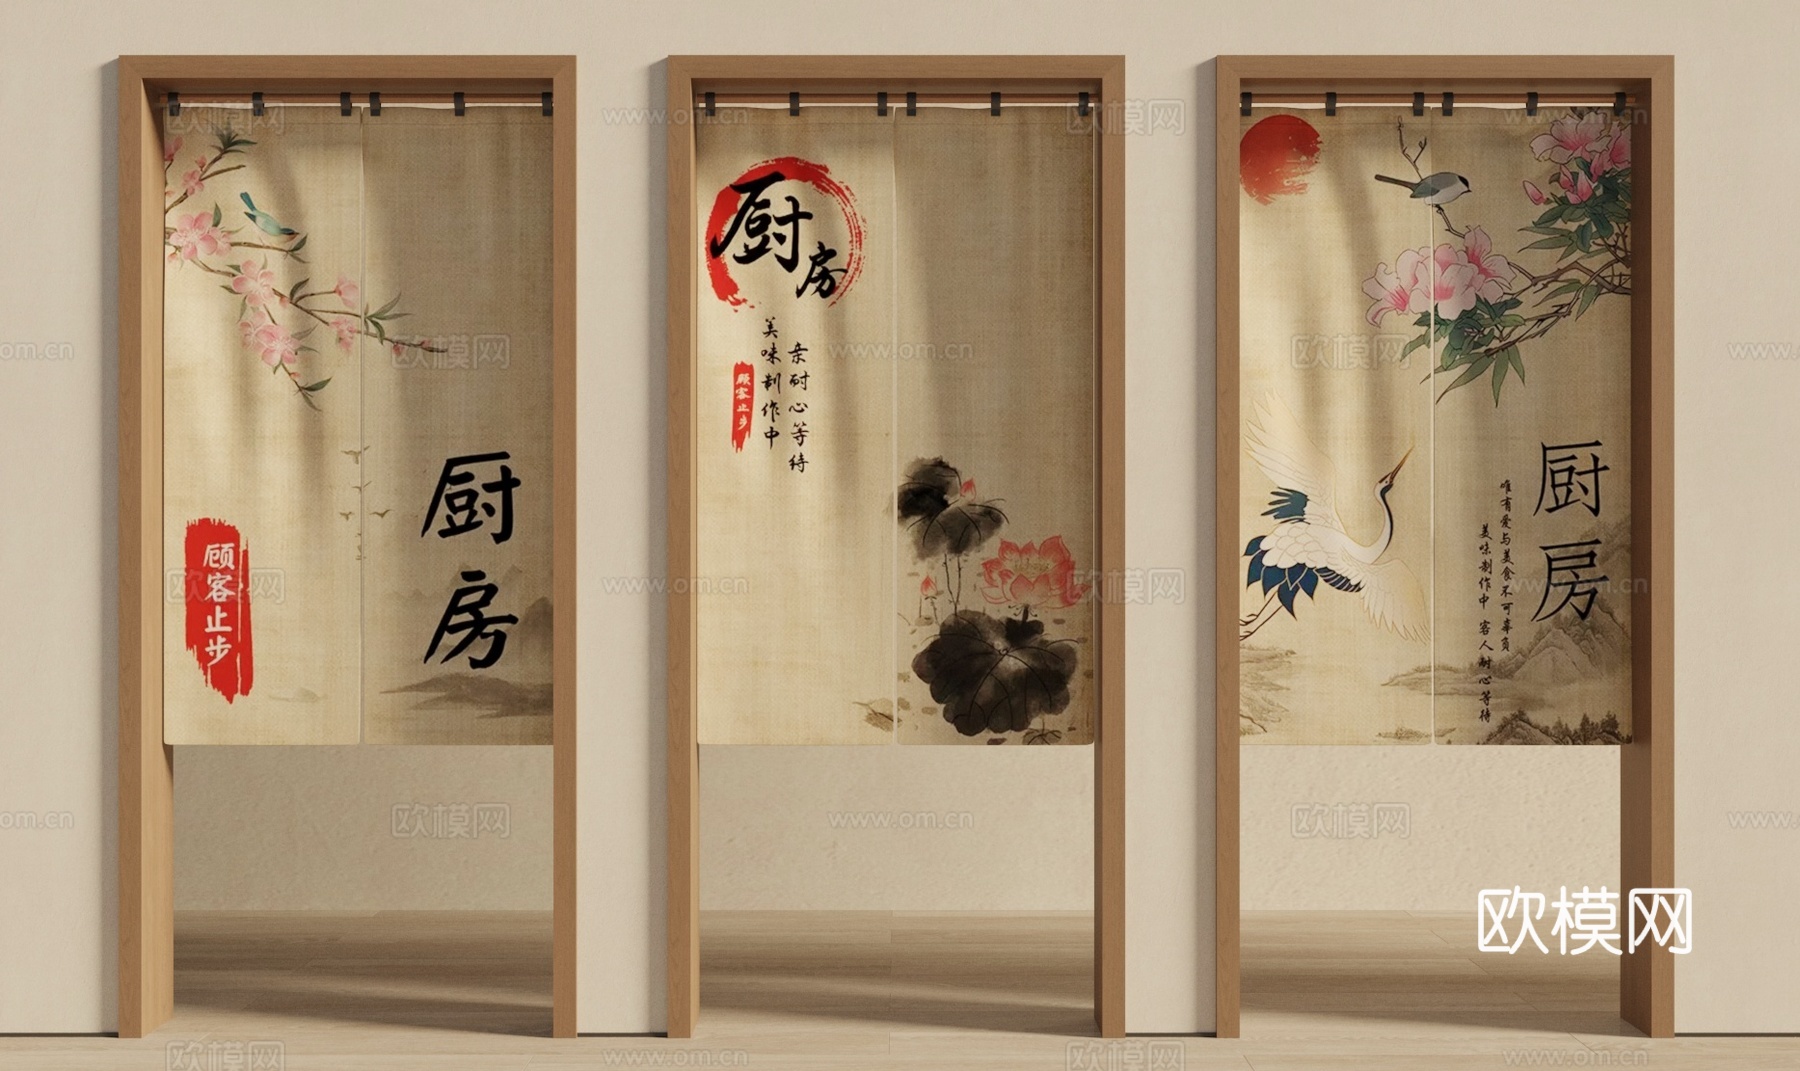 厨房
顾客止步
厨房
美味制作中
亲耐心等待
顾客止步
厨房
唯有爱与美食不可辜负
美味制作中 客人耐心等待
欧模网
www.om.cn